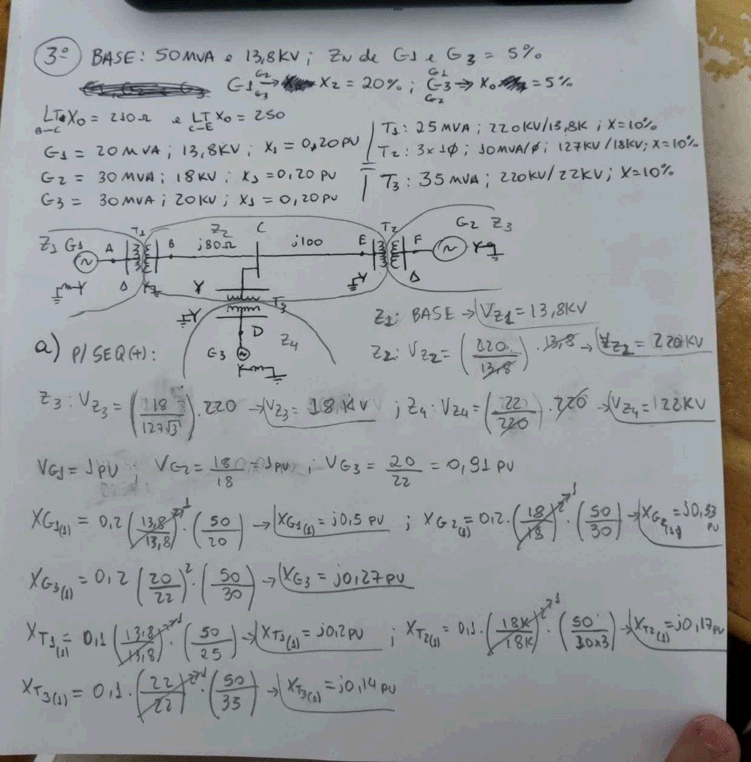 3º BASE: 50MVA e 13,8KV; ZN de G1 e G3 = 5%
G1 G2 G3 → X2 = 20%; G1 G3 G2 → X0 = 5%
LT B-C X0 = 210Ω e LT C-E X0 = 250
G1 = 20MVA; 13,8KV; X1 = 0,20 PU
G2 = 30MVA; 18KV; X1 = 0,20 PU
G3 = 30MVA; 20KV; X1 = 0,20 PU
T1: 25MVA; 220KV/13,8K; X=10%
T2: 3x1Φ; 10MVA/Φ; 127KV/18KV; X=10%
T3: 35MVA; 220KV/22KV; X=10%
Z1 G1 A T1 B Z2 C E T2 F G2 Z3
j80Ω j100
Y Δ Y Y T3 Y Δ Y
D
G3 Z4
Z1: BASE → VZ1 = 13,8KV
Z2: VZ2 = (220/13,8) . 13,8 → VZ2 = 220KV
a) P/ SEQ(+):
Z3: VZ3 = (18/127√3) . 220 → VZ3 = 18KV; Z4: VZ4 = (22/220) . 220 → VZ4 = 22KV
VG1 = 1PU; VG2 = 18/18 = 1PU; VG3 = 20/22 = 0,91 PU
XG1(1) = 0,2 (13,8/13,8)²¹ . (50/20) → XG1(1) = j0,5 PU; XG2(1) = 0,2 . (18/18)²¹ . (50/30) → XG2(1) = j0,33 PU
XG3(1) = 0,2 (20/22)² . (50/30) → XG3 = j0,27PU
XT1(1) = 0,1 (13,8/13,8)²¹ . (50/25) → XT1(1) = j0,2PU; XT2(1) = 0,1 . (18K/18K)²¹ . (50/10x3) → XT2(1) = j0,17PU
XT3(1) = 0,1 . (22/22)²¹ . (50/35) → XT3(1) = j0,14PU